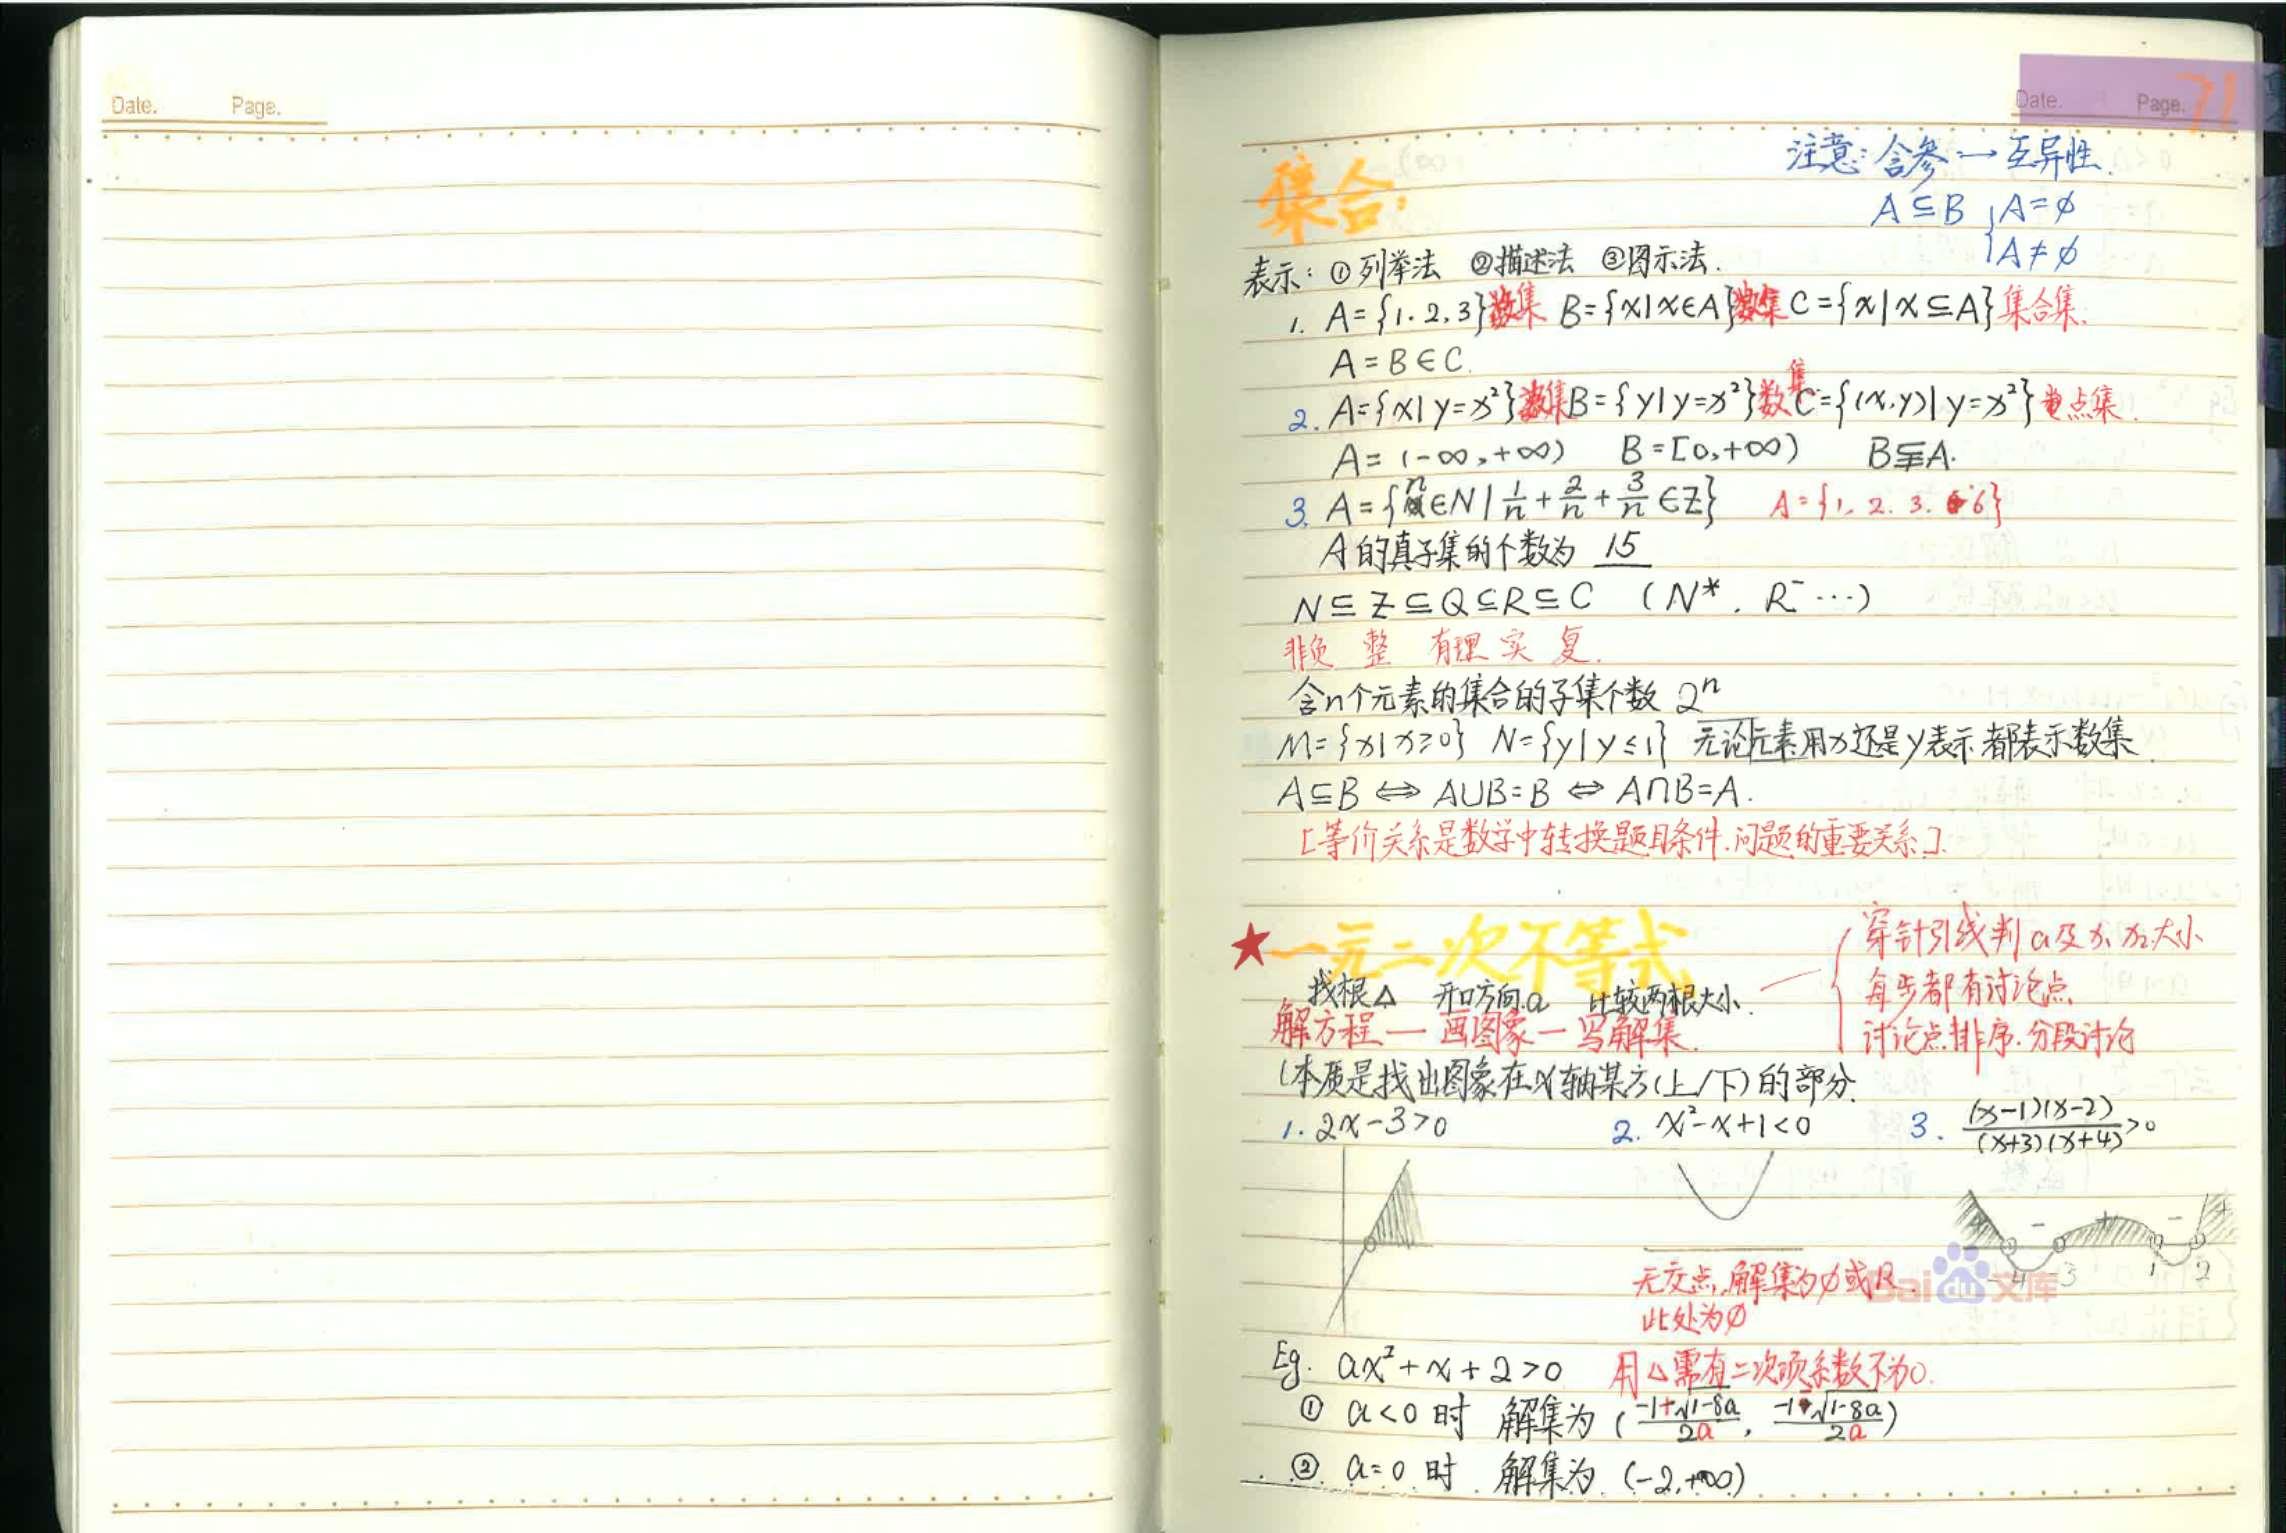 Date. Page.
Date. Page. 71
注意:含参→互异性.
集合:
A⊆B { A=∅
A≠∅
表示:①列举法 ②描述法 ③图示法.
1. A={1.2,3}数集 B={x|x∈A}数集 C={x|x⊆A}集合集.
A=B∈C.
2. A={x|y=x²}数集 B={y|y=x²}数集 C={(x,y)|y=x²}点集.
A=(-∞,+∞) B=[0,+∞) B⫋A.
3. A={n∈N|1/n+2/n+3/n∈Z} A={1,2.3.6}
A的真子集的个数为 15
N⊆Z⊆Q⊆R⊆C (N*, R⁻…)
非负 整 有理 实 复.
含n个元素的集合的子集个数 2ⁿ
M={x|x≥0} N={y|y≤1} 无论元素用x还是y表示都表示数集.
A⊆B⇔A∪B=B⇔A∩B=A.
[等价关系是数学中转换题目条件.问题的重要关系].
★一元二次不等式
穿针引线判a及x₁x₂大小
找根△ 开口方向a 比较两根大小.
每步都有讨论点
解方程—画图象—写解集.
讨论点排序.分段讨论
(本质是找出图象在x轴某方(上/下)的部分.
1. 2x-3>0 2. x²-x+1<0 3. (x-1)(x-2)/(x+3)(x+4)>0
- + - +
-4 -3 1 2
无交点,解集为∅或R.
此处为∅
Bai du 文库
Eg. ax²+x+2>0 用△需有二次项系数不为0.
① a<0时 解集为 ((-1+√1-8a)/2a, (-1-√1-8a)/2a)
② a=0时 解集为 (-2,+∞)